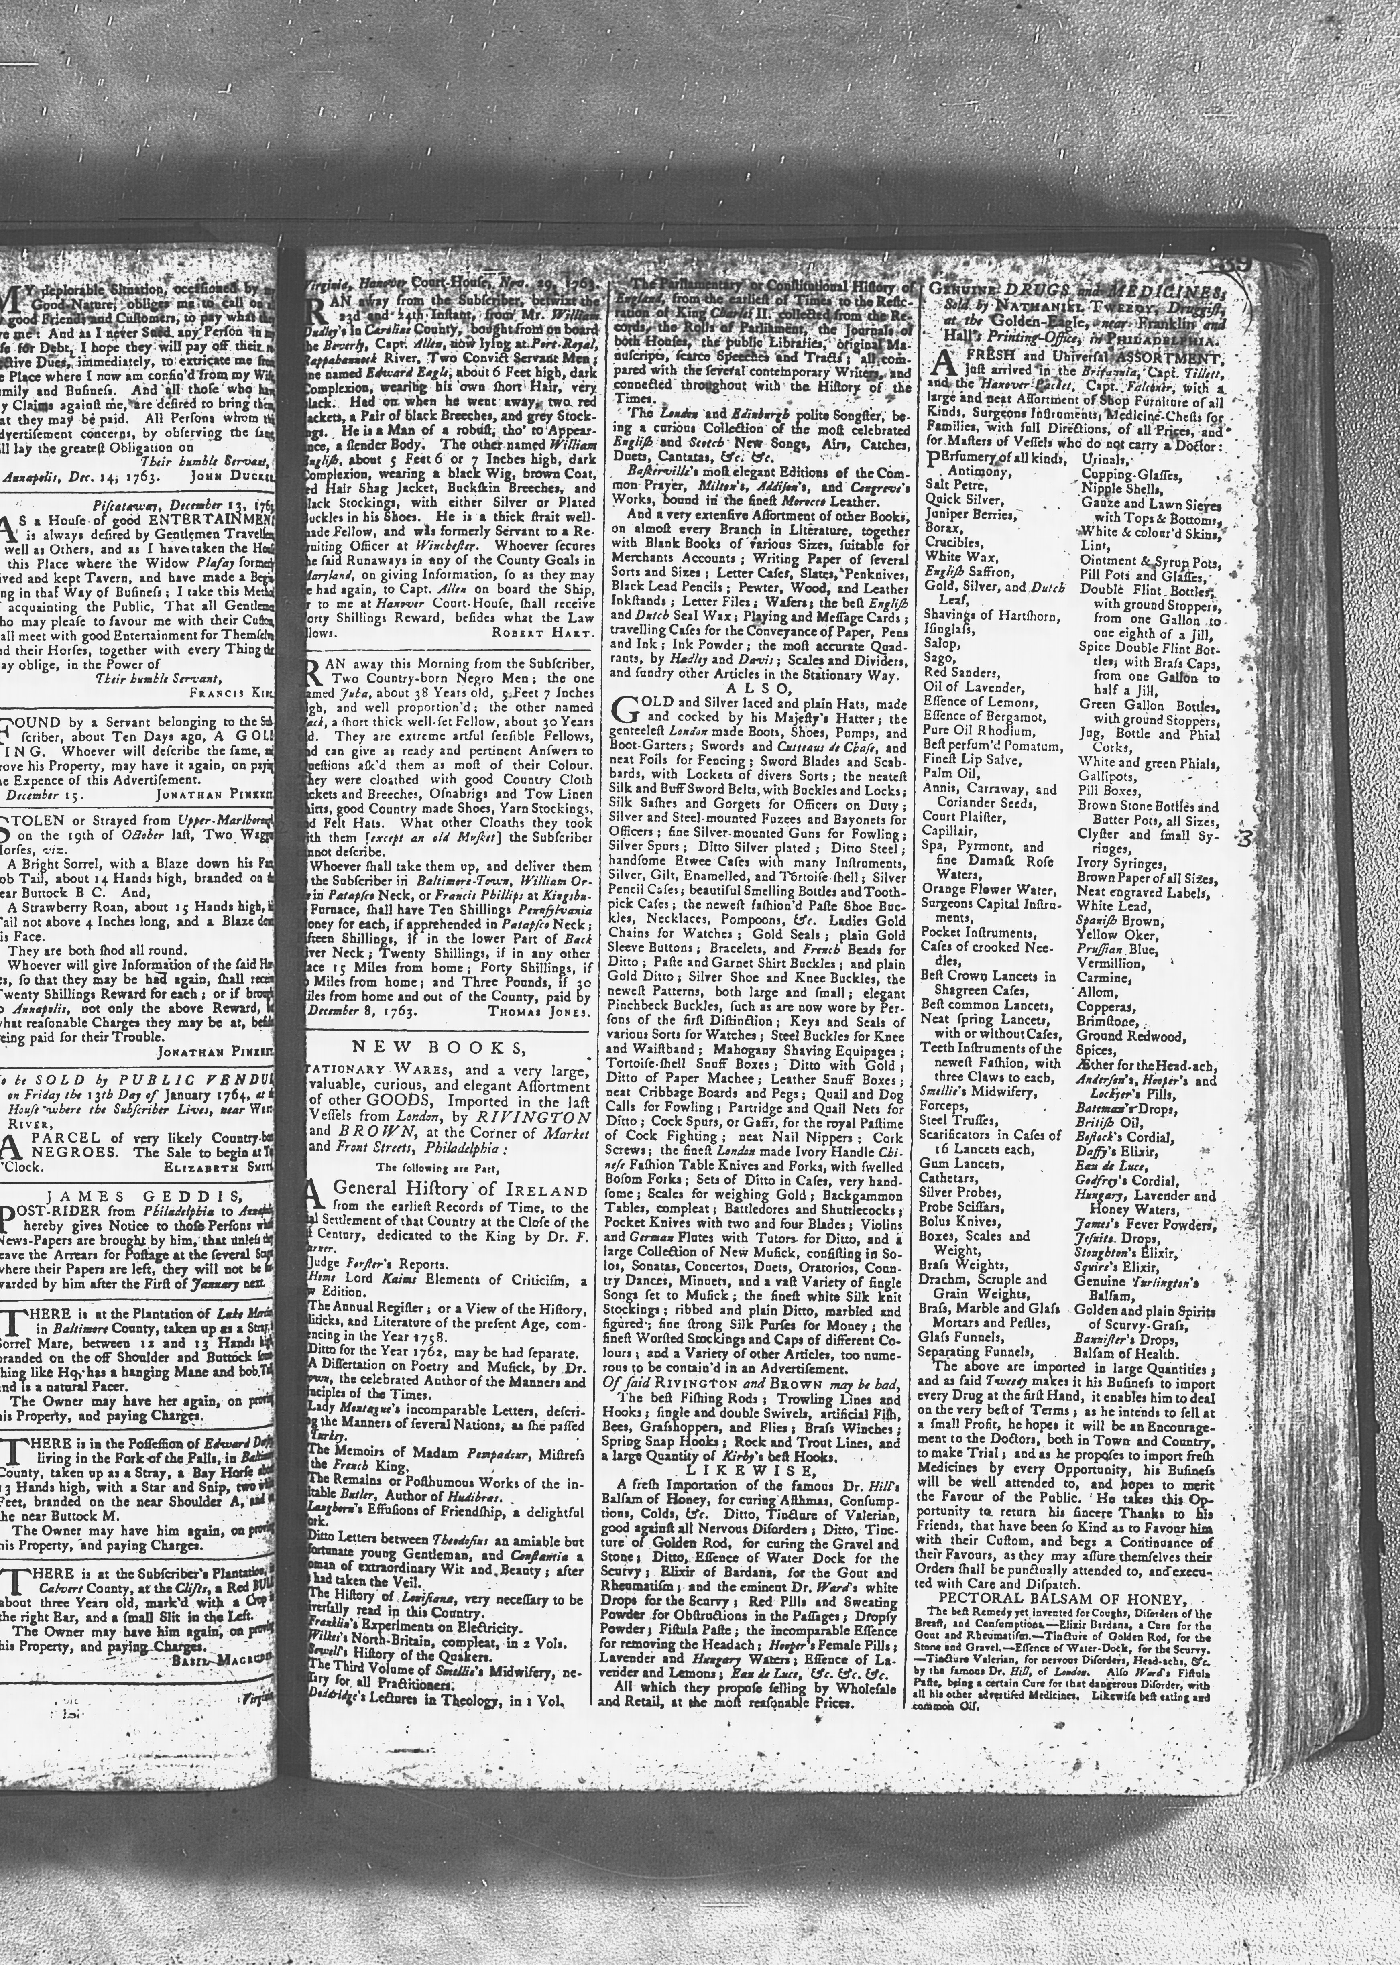 MY deplorable Situation, occasioned by
Good Nature, obliges me to call on
good Friends and Customers, to pay what
me: And as I never Sued any Person in
for Debt, I hope they will pay off their
Dues, immediately, to extricate me from
Place where I now am confin'd from my
and Business. And all those who
Claims against me, are desired to bring
that they may be paid. All Persons whom
Advertisement concerns, by observing the
lay the greatest Obligation on
Their humble Servant,
Annapolis, Dec. 14, 1763. JOHN
Piscataway, December 13,
AS a House of good ENTERTAINMENT
is always desired by Gentlemen
well as Others, and as I have taken the
this Place where the Widow Playfay
and kept Tavern, and have made a
in that Way of Business; I take this
acquainting the Public, That all
who may please to favour me with their
meet with good Entertainment for
their Horses, together with every Thing
oblige, in the Power of
Their humble Servant,
FRANCIS
FOUND by a Servant belonging to the
scriber, about Ten Days ago, A
ING. Whoever will describe the same,
prove his Property, may have it again, on
Expence of this Advertisement.
December 15. JONATHAN
STOLEN or Strayed from Upper-Marlborough
on the 19th of October last, Two
Horses, viz.
A Bright Sorrel, with a Blaze down his
Tail, about 14 Hands high, branded on
near Buttock B C. And,
A Strawberry Roan, about 15 Hands high,
Tail not above 4 Inches long, and a Blaze
his Face.
They are both shod all round.
Whoever will give Information of the said
so that they may be had again, shall
Twenty Shillings Reward for each; or if
Annapolis, not only the above Reward,
what reasonable Charges they may be at,
being paid for their Trouble.
JONATHAN
be SOLD by PUBLIC
on Friday the 13th Day of January 1764,
House where the Subscriber Lives, near
RIVER,
A PARCEL of very likely
NEGROES. The Sale to begin at
'Clock. ELIZABETH
JAMES GEDDIS,
POST-RIDER from Philadelphia to
hereby gives Notice to those Persons
News-Papers are brought by him, that unless
leave the Arrears for Postage at the several
where their Papers are left, they will not be
warded by him after the First of January next.
THERE is at the Plantation of Luke
in Baltimore County, taken up as a
Sorrel Mare, between 12 and 13 Hands
branded on the off Shoulder and Buttock
thing like HQ, has a hanging Mane and bob
and is a natural Pacer.
The Owner may have her again, on
his Property, and paying Charges.
THERE is in the Possession of Edward
living in the Fork of the Falls, in
County, taken up as a Stray, a Bay Horse
13 Hands high, with a Star and Snip, two
Feet, branded on the near Shoulder A,
the near Buttock M.
The Owner may have him again, on
his Property, and paying Charges.
THERE is at the Subscriber's Plantation,
Calvert County, at the Clifts, a Red
about three Years old, mark'd with a Crop
the right Ear, and a small Slit in the Left.
The Owner may have him again, on
his Property, and paying Charges.
BASIL
Virginia, Hanover Court-House, Nov. 29, 1763.
RAN away from the Subscriber, betwixt the
23d and 24th Instant, from Mr. William
Dudley's in Caroline County, bought from on board
the Beverly, Capt. Allen, now lying at Port-Royal,
Rappahannock River, Two Convict Servant Men;
one named Edward Eagle, about 6 Feet high, dark
Complexion, wearing his own short Hair, very
black. Had on when he went away, two red
Jackets, a Pair of black Breeches, and grey Stock-
ings. He is a Man of a robust, tho' to Appear-
ance, a slender Body. The other named William
English, about 5 Feet 6 or 7 Inches high, dark
Complexion, wearing a black Wig, brown Coat,
red Hair Shag Jacket, Buckskin Breeches, and
black Stockings, with either Silver or Plated
Buckles in his Shoes. He is a thick strait well-
made Fellow, and was formerly Servant to a Re-
cruiting Officer at Winchester. Whoever secures
the said Runaways in any of the County Goals in
Maryland, on giving Information, so as they may
be had again, to Capt. Allen on board the Ship,
or to me at Hanover Court-House, shall receive
Forty Shillings Reward, besides what the Law
allows. ROBERT HART.
RAN away this Morning from the Subscriber,
Two Country-born Negro Men; the one
named Juba, about 38 Years old, 5 Feet 7 Inches
high, and well proportion'd; the other named
Jack, a short thick well-set Fellow, about 30 Years
old. They are extreme artful sensible Fellows,
and can give as ready and pertinent Answers to
Questions ask'd them as most of their Colour.
They were cloathed with good Country Cloth
Jackets and Breeches, Osnabrigs and Tow Linen
Shirts, good Country made Shoes, Yarn Stockings,
and Felt Hats. What other Cloaths they took
with them [except an old Musket] the Subscriber
cannot describe.
Whoever shall take them up, and deliver them
to the Subscriber in Baltimore-Town, William Or-
in Patapsco Neck, or Francis Phillips at Kingsbu-
Furnace, shall have Ten Shillings Pennsylvania
Money for each, if apprehended in Patapsco Neck;
Fifteen Shillings, if in the lower Part of Back
River Neck; Twenty Shillings, if in any other
Place 15 Miles from home; Forty Shillings, if
Miles from home; and Three Pounds, if 30
Miles from home and out of the County, paid by
December 8, 1763. THOMAS JONES.
NEW BOOKS,
STATIONARY WARES, and a very large,
valuable, curious, and elegant Assortment
of other GOODS, Imported in the last
Vessels from London, by RIVINGTON
and BROWN, at the Corner of Market
and Front Streets, Philadelphia:
The following are Part,
A General History of IRELAND
from the earliest Records of Time, to the
Settlement of that Country at the Close of the
Century, dedicated to the King by Dr. F.
Judge Forster's Reports.
Home Lord Kaims Elements of Criticism, a
new Edition.
The Annual Register; or a View of the History,
Politicks, and Literature of the present Age, com-
mencing in the Year 1758.
Ditto for the Year 1762, may be had separate.
A Dissertation on Poetry and Musick, by Dr.
Brown, the celebrated Author of the Manners and
Principles of the Times.
Lady Montague's incomparable Letters, descri-
bing the Manners of several Nations, as she passed
Turkey.
The Memoirs of Madam Pompadour, Mistress
the French King.
The Remains or Posthumous Works of the in-
imitable Butler, Author of Hudibras.
Langhorn's Effusions of Friendship, a delightful
Work.
Ditto Letters between Theodosius an amiable but
unfortunate young Gentleman, and Constantia a
Woman of extraordinary Wit and Beauty; after
had taken the Veil.
The History of Louisiana, very necessary to be
universally read in this Country.
Franklin's Experiments on Electricity.
Wilkes's North-Britain, compleat, in 2 Vols.
Sewell's History of the Quakers.
The Third Volume of Smellie's Midwifery, ne-
cessary for all Practitioners.
Doddridge's Lectures in Theology, in 1 Vol.
The Parliamentary or Constitutional History of
England, from the earliest of Times to the Resto-
ration of King Charles II. collected from the Re-
cords, the Rolls of Parliament, the Journals of
both Houses, the public Libraries, original Ma-
nuscripts, scarce Speeches and Tracts; all com-
pared with the several contemporary Writers, and
connected throughout with the History of the
Times.
The London and Edinburgh polite Songster, be-
ing a curious Collection of the most celebrated
English and Scotch New Songs, Airs, Catches,
Duets, Cantatas, &c. &c.
Baskerville's most elegant Editions of the Com-
mon Prayer, Milton's, Addison's, and Congreve's
Works, bound in the finest Morocco Leather.
And a very extensive Assortment of other Books,
on almost every Branch in Literature, together
with Blank Books of various Sizes, suitable for
Merchants Accounts; Writing Paper of several
Sorts and Sizes; Letter Cases, Slates, Penknives,
Black Lead Pencils; Pewter, Wood, and Leather
Inkstands; Letter Files; Wafers; the best English
and Dutch Seal Wax; Playing and Message Cards;
travelling Cases for the Conveyance of Paper, Pens
and Ink; Ink Powder; the most accurate Quad-
rants, by Hadley and Davis; Scales and Dividers,
and sundry other Articles in the Stationary Way.
ALSO,
GOLD and Silver laced and plain Hats, made
and cocked by his Majesty's Hatter; the
genteelest London made Boots, Shoes, Pumps, and
Boot-Garters; Swords and Cutteaus de Chase, and
neat Foils for Fencing; Sword Blades and Scab-
bards, with Lockets of divers Sorts; the neatest
Silk and Buff Sword Belts, with Buckles and Locks;
Silk Sashes and Gorgets for Officers on Duty;
Silver and Steel-mounted Fuzees and Bayonets for
Officers; fine Silver-mounted Guns for Fowling;
Silver Spurs; Ditto Silver plated; Ditto Steel;
handsome Etwee Cases with many Instruments,
Silver, Gilt, Enamelled, and Tortoise-shell; Silver
Pencil Cases; beautiful Smelling Bottles and Tooth-
pick Cases; the newest fashion'd Paste Shoe Buc-
kles, Necklaces, Pompoons, &c. Ladies Gold
Chains for Watches; Gold Seals; plain Gold
Sleeve Buttons; Bracelets, and French Beads for
Ditto; Paste and Garnet Shirt Buckles; and plain
Gold Ditto; Silver Shoe and Knee Buckles, the
newest Patterns, both large and small; elegant
Pinchbeck Buckles, such as are now wore by Per-
sons of the first Distinction; Keys and Seals of
various Sorts for Watches; Steel Buckles for Knee
and Waistband; Mahogany Shaving Equipages;
Tortoise-shell Snuff Boxes; Ditto with Gold;
Ditto of Paper Machee; Leather Snuff Boxes;
neat Cribbage Boards and Pegs; Quail and Dog
Calls for Fowling; Partridge and Quail Nets for
Ditto; Cock Spurs, or Gaffs, for the royal Pastime
of Cock Fighting; neat Nail Nippers; Cork
Screws; the finest London made Ivory Handle Chi-
nese Fashion Table Knives and Forks, with swelled
Bosom Forks; Sets of Ditto in Cases, very hand-
some; Scales for weighing Gold; Backgammon
Tables, compleat; Battledores and Shuttlecocks;
Pocket Knives with two and four Blades; Violins
and German Flutes with Tutors for Ditto, and a
large Collection of New Musick, consisting in So-
los, Sonatas, Concertos, Duets, Oratorios, Coun-
try Dances, Minuets, and a vast Variety of single
Songs set to Musick; the finest white Silk knit
Stockings; ribbed and plain Ditto, marbled and
figured; fine strong Silk Purses for Money; the
finest Worsted Stockings and Caps of different Co-
lours; and a Variety of other Articles, too nume-
rous to be contain'd in an Advertisement.
Of said RIVINGTON and BROWN may be had,
The best Fishing Rods; Trowling Lines and
Hooks; single and double Swivels, artificial Fish,
Bees, Grashoppers, and Flies; Brass Winches;
Spring Snap Hooks; Rock and Trout Lines, and
a large Quantity of Kirby's best Hooks.
LIKEWISE,
A fresh Importation of the famous Dr. Hill's
Balsam of Honey, for curing Asthmas, Consump-
tions, Colds, &c. Ditto, Tincture of Valerian,
good against all Nervous Disorders; Ditto, Tinc-
ture of Golden Rod, for curing the Gravel and
Stone; Ditto, Essence of Water Dock for the
Scurvy; Elixir of Bardana, for the Gout and
Rheumatism; and the eminent Dr. Ward's white
Drops for the Scurvy; Red Pills and Sweating
Powder for Obstructions in the Passages; Dropsy
Powder; Fistula Paste; the incomparable Essence
for removing the Headach; Hooper's Female Pills;
Lavender and Hungary Waters; Essence of La-
vender and Lemons; Eau de Luce, &c. &c. &c.
All which they propose selling by Wholesale
and Retail, at the most reasonable Prices.
39
GENUINE DRUGS and MEDICINES,
Sold by NATHANIEL TWEEDY, Druggist,
at the Golden-Eagle, near Franklin and
Hall's Printing-Office, in PHILADELPHIA.
A FRESH and Universal ASSORTMENT,
just arrived in the Britannia, Capt. Tillett,
and the Hanover Packet, Capt. Falconer, with a
large and neat Assortment of Shop Furniture of all
Kinds, Surgeons Instruments, Medicine-Chests for
Families, with full Directions, of all Prices, and
for Masters of Vessels who do not carry a Doctor:
PErfumery of all kinds,
Antimony,
Salt Petre,
Quick Silver,
Juniper Berries,
Borax,
Crucibles,
White Wax,
English Saffron,
Gold, Silver, and Dutch
Leaf,
Shavings of Hartshorn,
Isinglass,
Salop,
Sago,
Red Sanders,
Oil of Lavender,
Essence of Lemons,
Essence of Bergamot,
Pure Oil Rhodium,
Best perfum'd Pomatum,
Finest Lip Salve,
Palm Oil,
Annis, Carraway, and
Coriander Seeds,
Court Plaister,
Capillair,
Spa, Pyrmont, and
fine Damask Rose
Waters,
Orange Flower Water,
Surgeons Capital Instru-
ments,
Pocket Instruments,
Cases of crooked Nee-
dles,
Best Crown Lancets in
Shagreen Cases,
Best common Lancets,
Neat spring Lancets,
with or without Cases,
Teeth Instruments of the
newest Fashion, with
three Claws to each,
Smellie's Midwifery,
Forceps,
Steel Trusses,
Scarificators in Cases of
16 Lancets each,
Gum Lancets,
Cathetars,
Silver Probes,
Probe Scissars,
Bolus Knives,
Boxes, Scales and
Weight,
Brass Weights,
Drachm, Scruple and
Grain Weights,
Brass, Marble and Glass
Mortars and Pestles,
Glass Funnels,
Separating Funnels,
Urinals,
Cupping-Glasses,
Nipple Shells,
Gauze and Lawn Sieves
with Tops & Bottoms,
White & colour'd Skins,
Lint,
Ointment & Syrup Pots,
Pill Pots and Glasses,
Double Flint Bottles,
with ground Stoppers,
from one Gallon to
one eighth of a Jill,
Spice Double Flint Bot-
tles, with Brass Caps,
from one Gallon to
half a Jill,
Green Gallon Bottles,
with ground Stoppers,
Jug, Bottle and Phial
Corks,
White and green Phials,
Gallipots,
Pill Boxes,
Brown Stone Bottles and
Butter Pots, all Sizes,
Clyster and small Sy-
ringes,
Ivory Syringes,
Brown Paper of all Sizes,
Neat engraved Labels,
White Lead,
Spanish Brown,
Yellow Oker,
Prussian Blue,
Vermillion,
Carmine,
Allom,
Copperas,
Brimstone,
Ground Redwood,
Spices,
Æther for the Head-ach,
Anderson's, Hooper's and
Lockyer's Pills,
Bateman's Drops,
British Oil,
Bostock's Cordial,
Daffy's Elixir,
Eau de Luce,
Godfrey's Cordial,
Hungary, Lavender and
Honey Waters,
James's Fever Powders,
Jesuits Drops,
Stoughton's Elixir,
Squire's Elixir,
Genuine Turlington's
Balsam,
Golden and plain Spirits
of Scurvy-Grass,
Bannister's Drops,
Balsam of Health.
The above are imported in large Quantities;
and as said Tweedy makes it his Business to import
every Drug at the first Hand, it enables him to deal
on the very best of Terms; as he intends to sell at
a small Profit, he hopes it will be an Encourage-
ment to the Doctors, both in Town and Country,
to make Trial; and as he proposes to import fresh
Medicines by every Opportunity, his Business
will be well attended to, and hopes to merit
the Favour of the Public. He takes this Op-
portunity to return his sincere Thanks to his
Friends, that have been so Kind as to Favour him
with their Custom, and begs a Continuance of
their Favours, as they may assure themselves their
Orders shall be punctually attended to, and execu-
ted with Care and Dispatch.
PECTORAL BALSAM OF HONEY,
The best Remedy yet invented for Coughs, Disorders of the
Breast, and Consumptions.—Elixir Bardana, a Cure for the
Gout and Rheumatism.—Tincture of Golden Rod, for the
Stone and Gravel.—Essence of Water-Dock, for the Scurvy.
—Tincture Valerian, for nervous Disorders, Head-achs, &c.
by the famous Dr. Hill, of London. Also Ward's Fistula
Paste, being a certain Cure for that dangerous Disorder, with
all his other advertised Medicines. Likewise best eating and
common Oil.